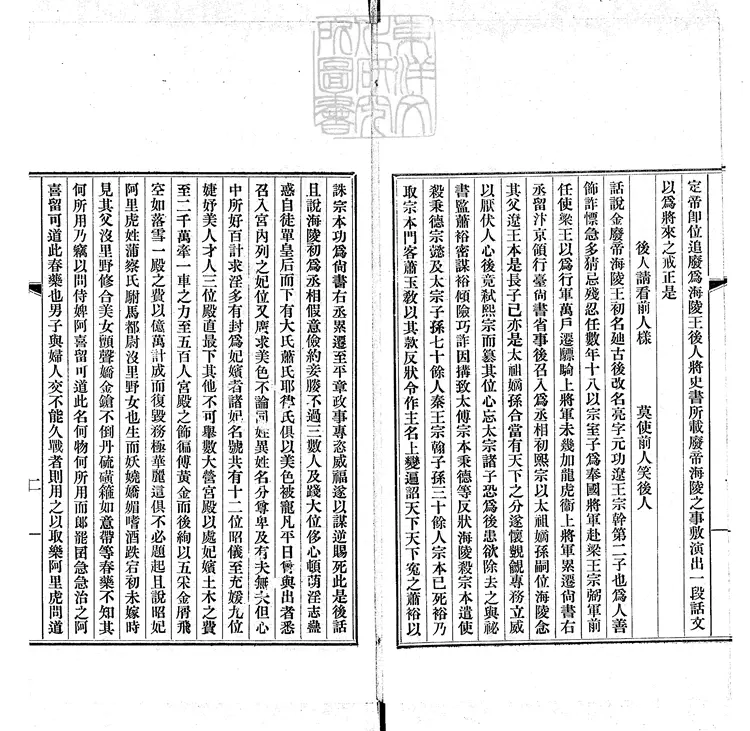 東洋文
化研究
所圖書
定帝卽位追廢爲海陵王後人將史書所載廢帝海陵之事敷演出一段話文
以爲將來之戒正是
後人請看前人樣 莫使前人笑後人
話說金廢帝海陵王初名廸古後改名亮字元功遼王宗幹第二子也爲人善
飾詐慓急多猜忌殘忍任數年十八以宗室子爲奉國將軍赴梁王宗弼軍前
任使梁王以爲行軍萬戶遷驃騎上將軍未幾加龍虎衞上將軍累遷尙書右
丞留汴京領行臺尙書省事後召入爲丞相初熙宗以太祖嫡孫嗣位海陵念
其父遼王本是長子己亦是太祖嫡孫合當有天下之分遂懷覬覦專務立威
以厭伏人心後竟弑熙宗而篡其位心忌太宗諸子恐爲後患欲除去之與祕
書監蕭裕密謀裕傾險巧詐因搆致太傅宗本秉德等反狀海陵殺宗本遣使
殺秉德宗懿及太宗子孫七十餘人秦王宗翰子孫三十餘人宗本已死裕乃
取宗本門客蕭玉敎以其款反狀令作主名上變遍詔天下天下冤之蕭裕以
誅宗本功爲尙書右丞累遷至平章政事專恣威福遂以謀逆賜死此是後話
且說海陵初爲丞相假意儉約妾媵不過三數人及踐大位侈心頓萌淫志蠱
惑自徒單皇后而下有大氏蕭氏耶律氏俱以美色被寵凡平日曾與出者悉
召入宮內列之妃位又廣求美色不論同姓異姓名分尊卑及有夫無夫但心
中所好百計求淫多有封爲妃嬪者諸妃名號共有十二位昭儀至充媛九位
婕妤美人才人三位殿直最下其他不可舉數大營宮殿以處妃嬪土木之費
至二千萬牽一車之力至五百人宮殿之飾徧傅黃金而後絢以五采金屑飛
空如落雪一殿之費以億萬計成而復毀務極華麗這俱不必題起且說昭妃
阿里虎姓蒲察氏駙馬都尉沒里野女也生而妖嬈嬌媚嗜酒跌宕初未嫁時
見其父沒里野修合美女顫聲嬌金鎗不倒丹硫磺箍如意帶等春藥不知其
何所用乃竊以問侍婢阿喜留可道此名何物何所用而郞罷囝急急治之阿
喜留可道此春藥也男子與婦人交不能久戰者則用之以取樂阿里虎問道
二